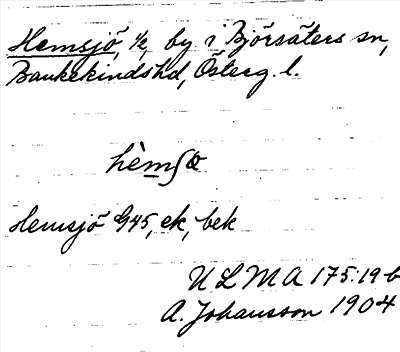 Hemsjö, 1/2, by i Björsäters sn,
Bankekindshd, Österg. l.
hèmʃœ
Hemsjö G45, ek, bek
ULMA 175:19 b
A. Johansson 1904